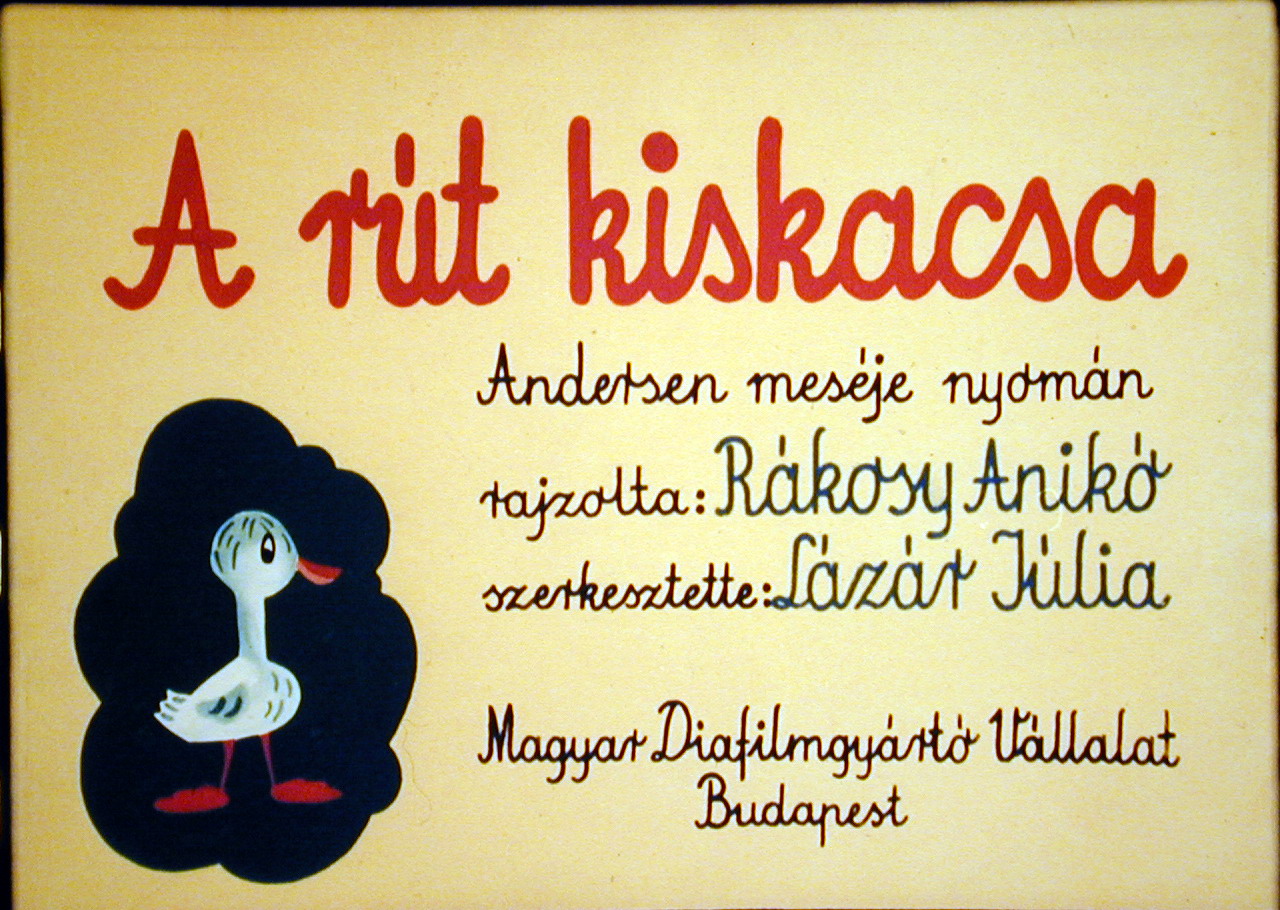 A rút kiskacsa
Andersen meséje nyomán
rajzolta: Rákosy Anikó
szerkesztette: Lázár Júlia
Magyar Diafilmgyártó Vállalat
Budapest